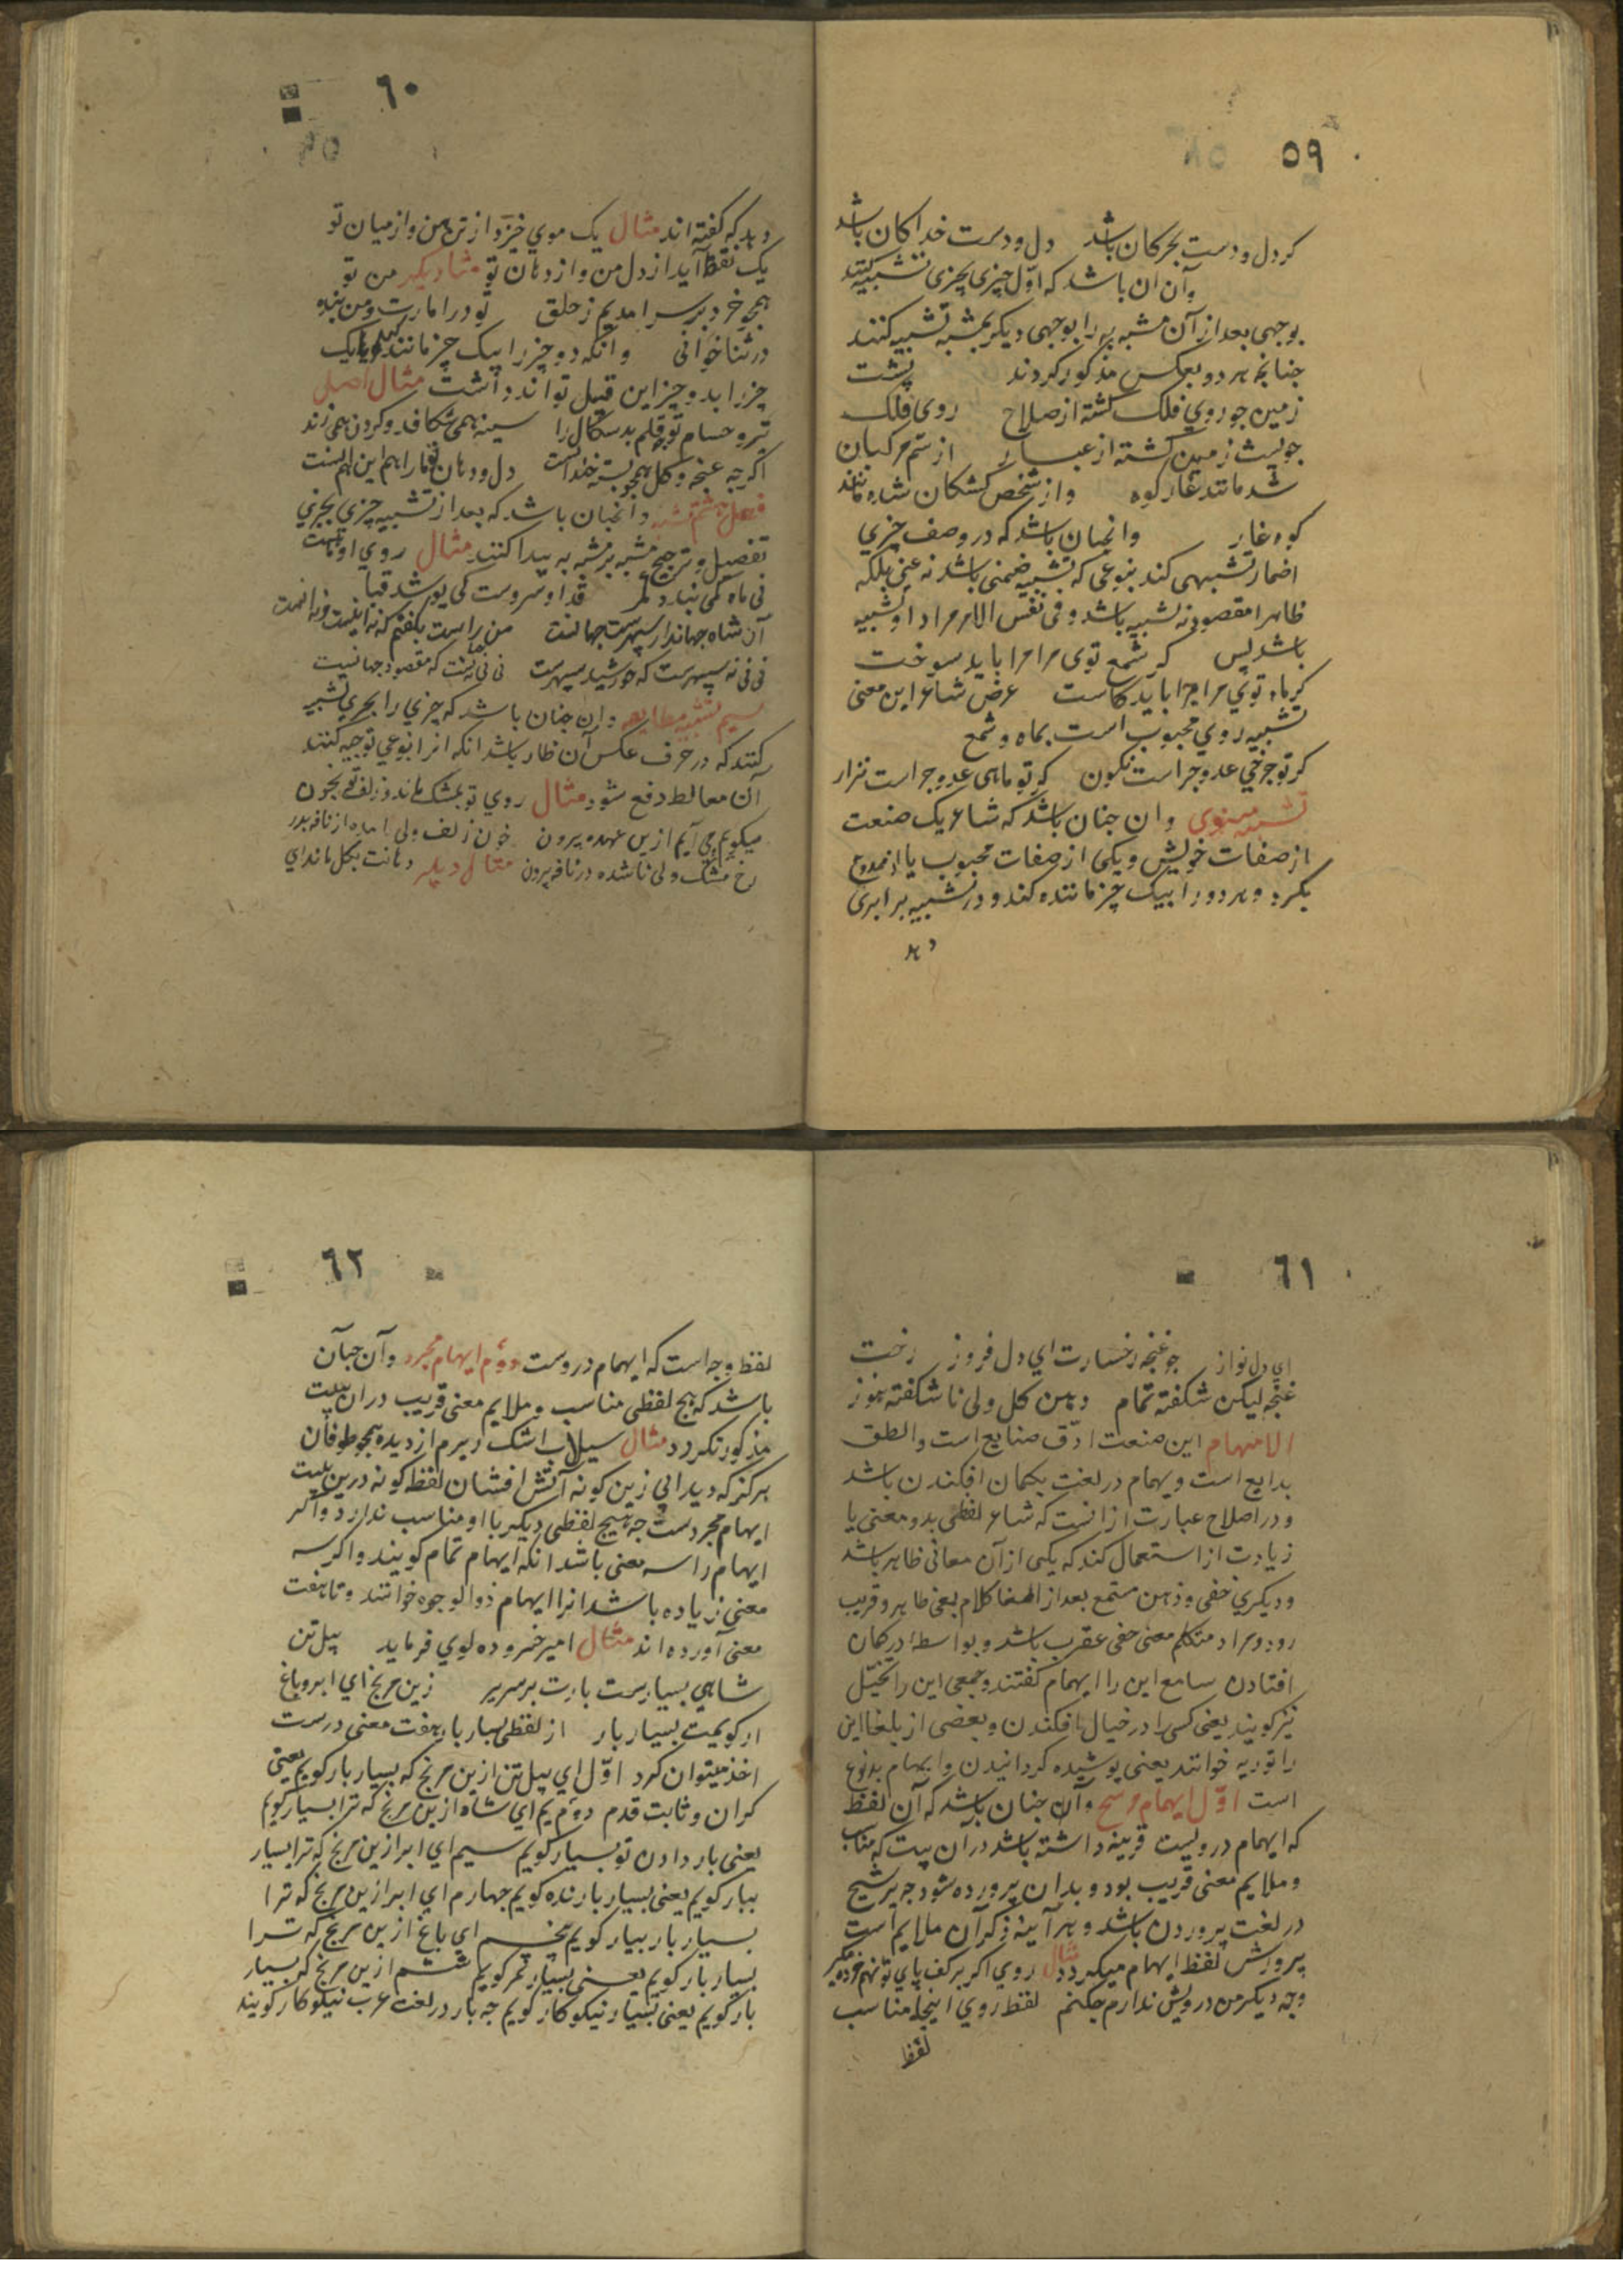 ٥٩
کر دل و دست بحر کان باشد دل و دست خداکان باشد
وآن ان باشد که اوّل چیزی بچیزی تشبیه کنند
بوجهی بعد از آن مشبه به را بوجهی دیکر بمشبه تشبیه کنند
جنانجه هر دو بعکس مذکور کردند پشت
زمین جو روي فلک کشته از صلاح روی فلک
جو پشت زمین کشته از غبار از سم مرکبان
شد مانند غار کوه واز شخص کشتکان شده مانند
کوه غار وانجنان باشد که در وصف چیزي
اضمار تشبیهی کند بنوعی که تشبیه ضمنی باشد نه عینی بلکه
ظاهرا مقصود نه تشبیه باشد و فی نفس الامر مراد او تشبیه
باشد پس کر شمع توی مرا مرا باید سوخت
کر ماه تويي مرا مرا باید کاست غرض شاعر این معنی
تشبیه روي محبوب است بماه و شمع
کر تو جرخی عدو جراست نکون کر تو ماهی عدو جراست نزار
تشبیه تسوی وان جنان باشد که شاعر یک صنعت
از صفات خویش و یکی از صفات محبوب یا از ممدوح
بکیرد و هر دو را بیک چیز ماننده کند و در تشبیه برابری
دهد
٦٠
دهد که کفته اند مثال یک موي خیزد از تن من واز میان تو
یک نقطه آید از دل من واز دهان تو مثال دیکر من تو
همجو خرد بر سر امدیم ز خلق تو در امارت و من بنده
در ثنا خوانی وانکه دو چیز را بیک چیز مانند کند و یا یک
چیز را بدو چیز این قبیل تواند داشت مثال اصل
تیر و حسام تو جو قلم بدسکال را سینه همی شکافد و کردن همی زند
اکرجه غنجه و کل همجو بسته خندانست دل و دهان تو مارا هم این هم انست
فصل هشتم تشبیه وانجنان باشد که بعد از تشبیه چیزي بچیزي
تفصیل و ترجیح مشبه بر مشبه به پیدا کنند مثال روي او ماهست
نی ماه کی نهد کمر قد او سروست کی پوشد قبا
آن شاه جهاندار سپهرست جهانست من راست بکفتم که نه اینست و نه انست
نی نی نه سپهرست که خورشید سپهرست نی نی نه جهانست که مقصود جهانیست
سیم تشبیه مطایعه وان جنان باشد که چیزي را بچیزي تشبیه
کنند که در حرف عکس آن ظاهر باشد انکه انرا بنوعي توجیه کنند
آن مغالط دفع شود مثال روي تو بمشک ماند و زلف تو بخون
میکویم و می آیم ازین عهده بیرون خون زلف ولی امده از نافه بدر
رخ مشک ولی ناشده در نافه برون مثال دیکر دهانت بکل ماند اي
٦١
اي دل نواز جو غنجه رخسارت اي دل فروز رخت
غنجه لیکن شکفته تمام دهن کل ولی ناشکفته هنوز
الایهام این صنعت ادقّ صنایع است والطف
بدایع است و یهام در لغت بکمان افکندن باشد
و در اصلاح عبارت از انست که شاعر لفظی بدو معنی یا
زیادت از استعمال کند که یکی از آن معانی ظاهر باشد
و دیکري خفی و ذهن مستمع بعد از اصغا کلام بمعنی ظاهر و قریب
رود و مراد متکلم معنی خفی عقرب باشد و بواسطه در کمان
افتادن سامع این را ایهام کفتند و جمعی این را تخیّل
نیز کویند یعنی کسی را در خیال افکندن و بعضی از بلغا این
را توریه خوانند یعنی پوشیده کردانیدن و ایهام بدو نوع
است اوّل ایهام مرشح وآن جنان باشد که آن لفظ
که ایهام دروست قرینه داشته باشد در آن بیت که مناسب
و ملایم معنی قریب بود و بدان پرورده شود جه ترشیح
در لغت پروردن باشد و هر آینه ذکر آن ملایم است
پرورش لفظ ایهام میکردد مثال روي اکر بر کف پاي تو نهم خرده مکیر
وجه دیکر من درویش ندارم جکنم لفظ روي اینجا مناسب
لفظ
٦٢
لفظ وجه است که ایهام دروست دوّم ایهام مجرد وآن جنان
باشد که هیج لفظی مناسب و ملایم معنی قریب در ان بیت
مذکور نکردد مثال سیلاب اشک دیدم از دیده همجو طوفان
هرکز که دید ابي زین کونه آتش افشان لفظ کونه درین بیت
ایهام مجردست جه هیچ لفظی دیکر با او مناسب ندارد و اکر
ایهام را سه معنی باشد انکه ایهام تمام کویند و اکر سه
معنی زیاده باشد انرا ایهام ذوالوجوه خوانند و تا هفت
معنی آورده اند مثال امیر خسرو دهلوي فرماید پیل تن
شاهي بسیارست بارت بر سریر زین مرنج اي ابر و باغ
ار کویمت بسیار بار از لفظ بسیار بار هفت معنی درست
اخذ میتوان کرد اوّل اي پیل تن ازین مرنج که بسیار بار کویم یعنی
کران و ثابت قدم دوّم یم اي شاه ازین مرنج که ترا بسیار کویم
یعنی بار دادن تو بسیار کویم سیم اي ابر ازین مرنج که ترا بسیار
ببار کویم یعنی بسیار بارنده کویم جهارم اي ابر ازین مرنج که ترا
بسیار بار بیار کویم پنجم اي باغ ازین مرنج که ترا
بسیار بار کویم یعنی بسیار ثمر کویم ششم ازین مرنج که بسیار
بار کویم یعنی بسیار نیکو کار کویم جه بار در لغت عرب نیکو کار کویند